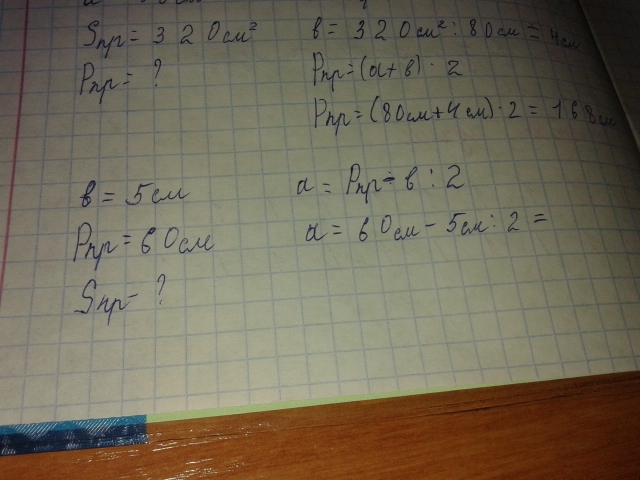 Sпр = 320см²
Pпр = ?
в = 320см² : 80см = 4см
Pпр = (а+в) · 2
Pпр = (80см+4см) · 2 = 168см
в = 5см
Pпр = 60см
Sпр - ?
а = Pпр - в : 2
а = 60см - 5см : 2 =